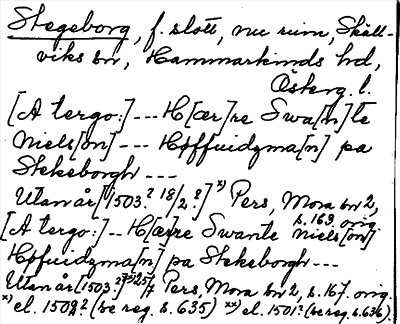 Stegeborg, f. slott, nu ruin, Skäll-
viks sn, Hammarkinds hd,
Österg. l.
[A tergo:] --- H[ær]re Swa[n]te
Niels[øn] --- Høffuidzma[n] pa
Stekeborgh ---
Utan år [1503? 18/2?] x) Pers, Mora sn 2,
s. 163. orig.
[A tergo:] --- H[ær]re Swante Niels[øn]
Høffuidzma[n] pa Stekeborgh ---
Utan år [1503? Pers, Mora sn 2, s. 167. orig.
x) el. 1502? (se reg. s. 635) xx) el. 1501? (se reg. s. 636).